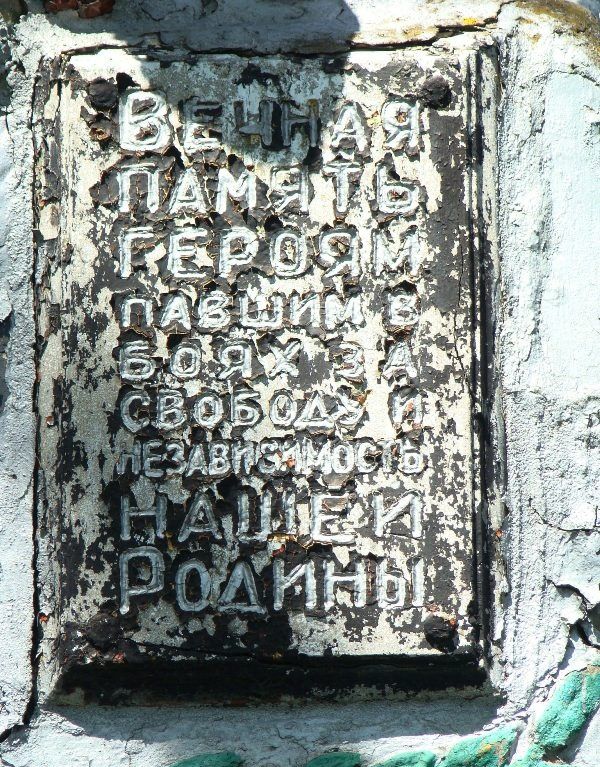 Вечная
память
героям
павшим в
боях за
свободу и
независимость
нашей
Родины